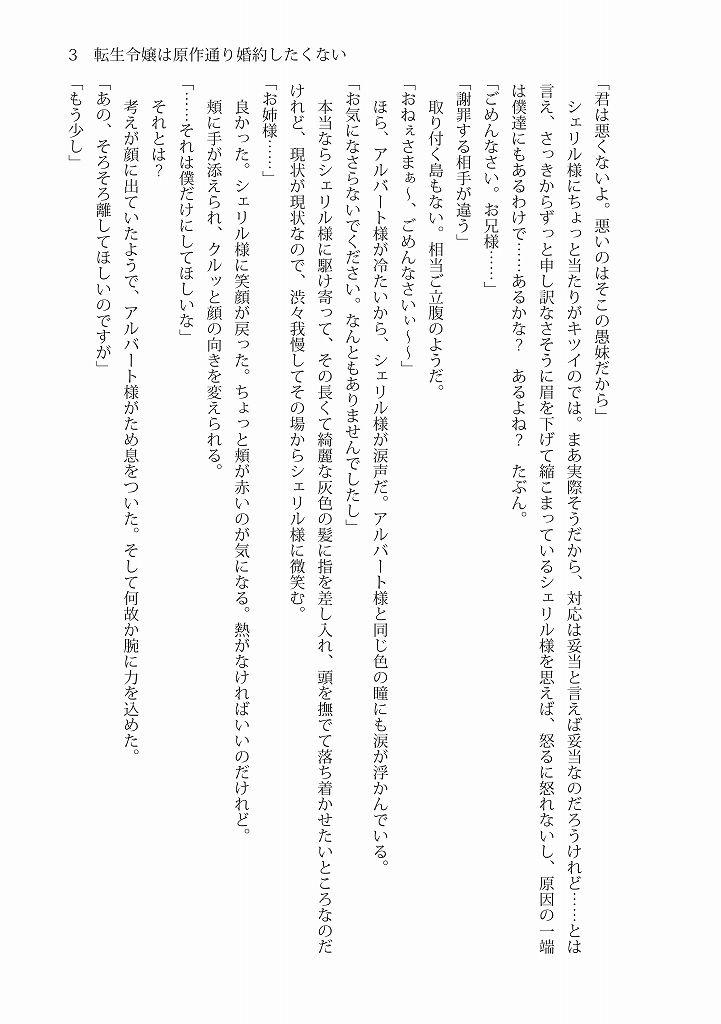 3　転生令嬢は原作通り婚約したくない
「君は悪くないよ。悪いのはそこの愚妹だから」
　シェリル様にちょっと当たりがキツイのでは。まあ実際そうだから、対応は妥当と言えば妥当なのだろうけれど……とは
言え、さっきからずっと申し訳なさそうに眉を下げて縮こまっているシェリル様を思えば、怒るに怒れないし、原因の一端
は僕達にもあるわけで……あるかな？　あるよね？　たぶん。
「ごめんなさい。お兄様……」
「謝罪する相手が違う」
　取り付く島もない。相当ご立腹のようだ。
「おねぇさまぁ～、ごめんなさいぃ～～」
　ほら、アルバート様が冷たいから、シェリル様が涙声だ。アルバート様と同じ色の瞳にも涙が浮かんでいる。
「お気になさらないでください。なんともありませんでしたし」
　本当ならシェリル様に駆け寄って、その長くて綺麗な灰色の髪に指を差し入れ、頭を撫でて落ち着かせたいところなのだ
けれど、現状が現状なので、渋々我慢してその場からシェリル様に微笑む。
「お姉様……」
　良かった。シェリル様に笑顔が戻った。ちょっと頬が赤いのが気になる。熱がなければいいのだけれど。
　頬に手が添えられ、クルッと顔の向きを変えられる。
「……それは僕だけにしてほしいな」
　それとは？
　考えが顔に出ていたようで、アルバート様がため息をついた。そして何故か腕に力を込めた。
「あの、そろそろ離してほしいのですが」
「もう少し」